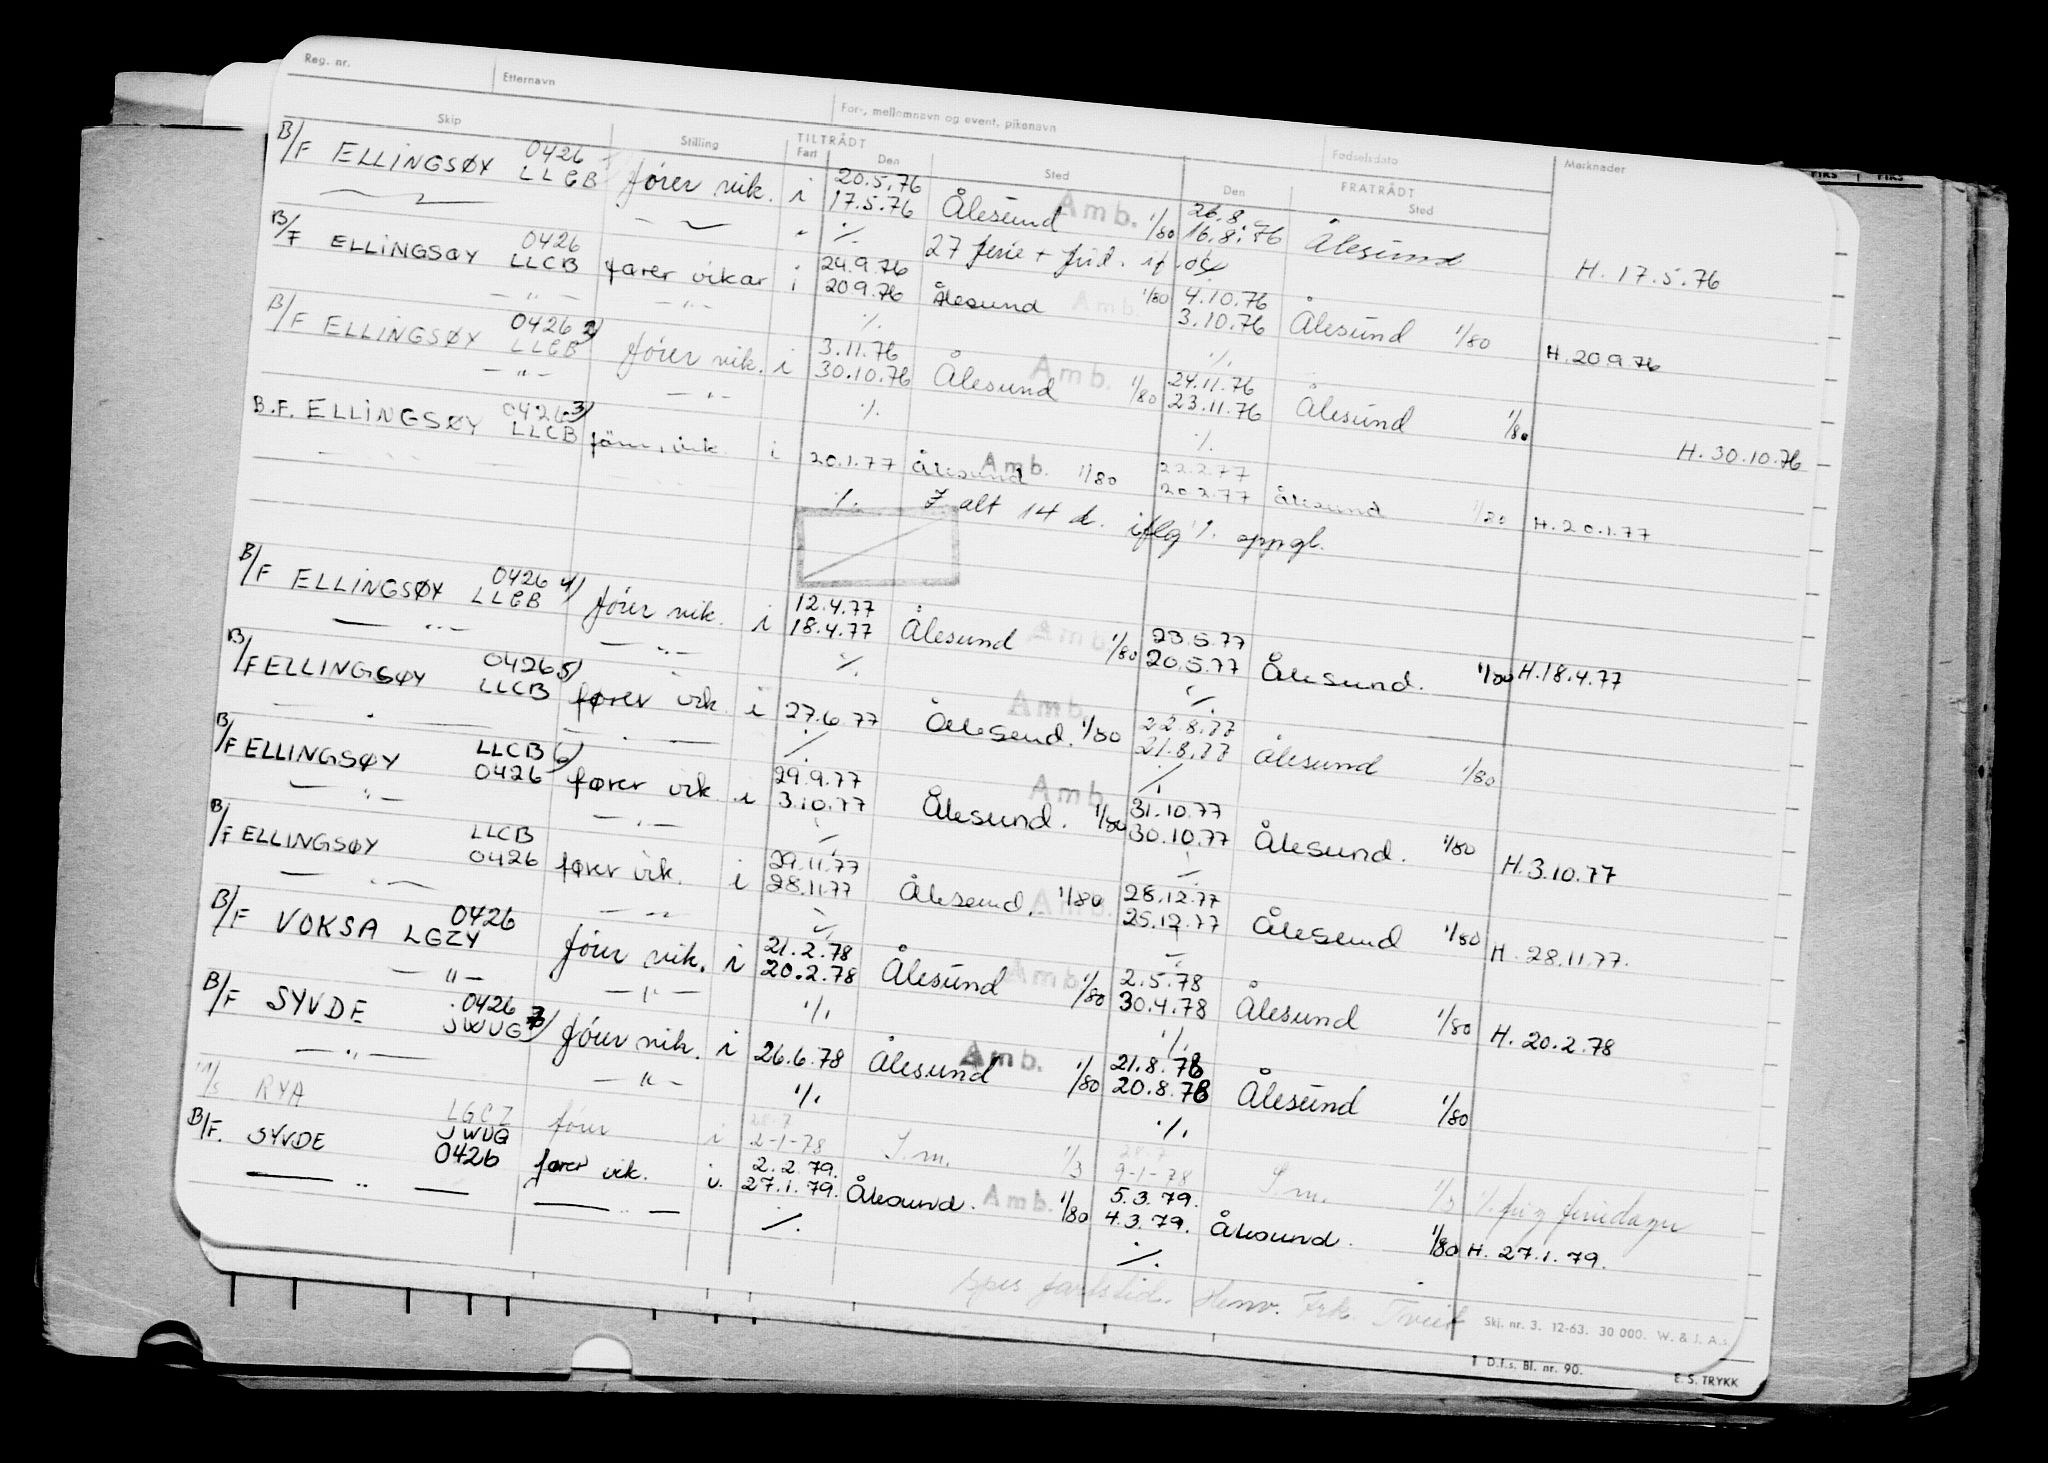 Reg. nr. Etternavn For-, mellomnavn og event. pikenavn Fødselsdato Merknader
Skip Stilling TILTRÅDT Fart Den Sted Den FRATRÅDT Sted
B/F ELLINGSØY 0426 LLCB fører vik. i 20.5.76 17.5.76 Ålesund Amb. 1/80 26.8. 16.8.76 Ålesund H. 17.5.76
— " — " ./. 27 ferie + frid.
B/F ELLINGSØY 0426 LLCB fører vikar i 24.9.76 20.9.76 Ålesund Amb. 1/80 4.10.76 3.10.76 Ålesund 1/80 H. 20.9.76
— " — — " — ./. ./.
B/F ELLINGSØY 0426 2) LLCB fører vik. i 3.11.76 30.10.76 Ålesund Amb. 1/80 24.11.76 23.11.76 Ålesund 1/80 H. 30.10.76
— " — — " — ./. ./.
B.F. ELLINGSØY 0426 3) LLCB fører vik. i 20.1.77 Ålesund Amb. 1/80 22.2.77 20.2.77 Ålesund 1/80 H. 20.1.77
./. I alt 14 d. iflg ./. oppg.
B/F ELLINGSØY 0426 4) LLCB fører vik. i 12.4.77 18.4.77 Ålesund Amb. 1/80 23.5.77 20.5.77 Ålesund. 1/80 H. 18.4.77
— " — — " — ./. ./.
B/F ELLINGSØY 0426 5) LLCB fører vik. i 27.6.77 Ålesund. Amb. 1/80 22.8.77 21.8.77 Ålesund 1/80
— " — — " — ./. ./.
B/F ELLINGSØY LLCB 6) 0426 fører vik. i 29.9.77 3.10.77 Ålesund. Amb. 1/80 31.10.77 30.10.77 Ålesund. 1/80 H. 3.10.77
— " — — " — ./. ./.
B/F ELLINGSØY LLCB 0426 fører vik. i 29.11.77 28.11.77 Ålesund. Amb. 1/80 28.12.77 25.12.77 Ålesund 1/80 H. 28.11.77.
— " — — " — ./. ./.
B/F VOKSA 0426 LGZY fører vik. i 21.2.78 20.2.78 Ålesund Amb. 1/80 2.5.78 30.4.78 Ålesund 1/80 H. 20.2.78
— " — — " — ./. ./.
B/F SYVDE 0426 JWUG 7) fører vik. i 26.6.78 Ålesund Amb. 1/80 21.8.78 20.8.78 Ålesund 1/80
— " — — " — ./. ./.
M/S RYA LGCZ fører i 28.7 2-1-78 S.m. 1/3 28.7 9-1-78 S.m. 1/3 ./. fri og feriedager
B/F. SYVDE JWUG 0426 fører vik. i. 2.2.79. 27.1.79. Ålesund. Amb. 1/80 5.3.79. 4.3.79. Ålesund. 1/80 H. 27.1.79.
— " — — " — ./. ./.
spes fartstid. Henv. Frk. Tveit
Skj. nr. 3. 12-63. 30 000. W. & J. A.s
D.f.s. Bl. nr. 90.
E. S. TRYKK